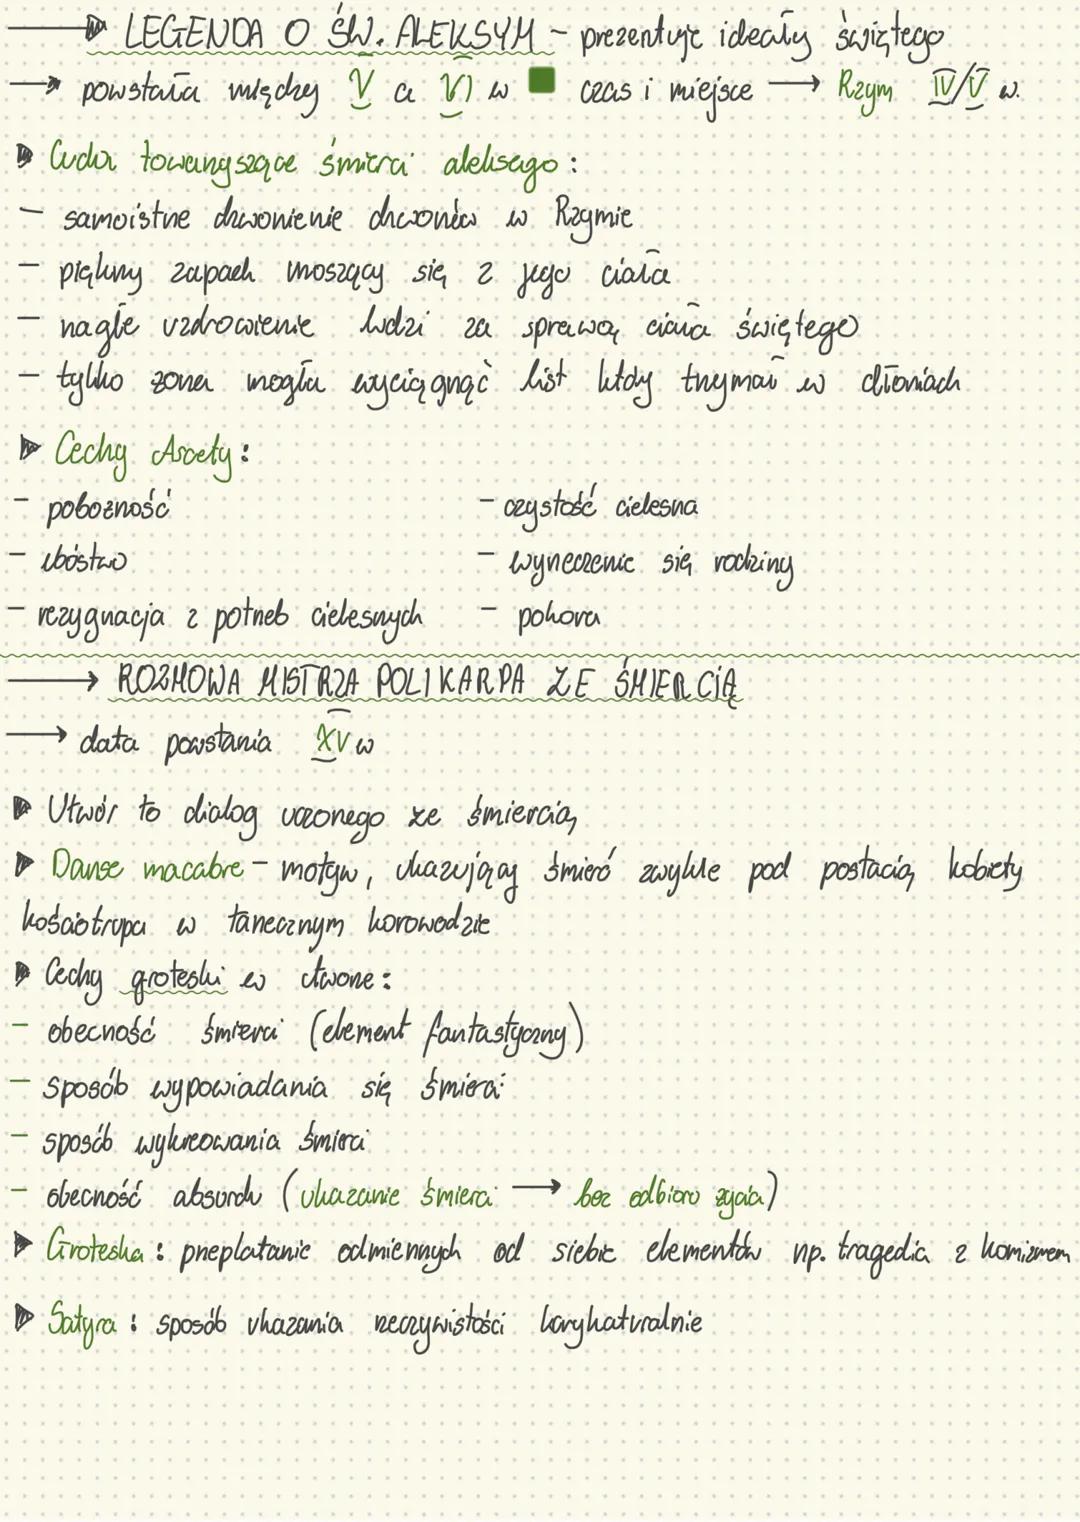 LEGENDA O ŚW. ALEKSYM - prezentuje ideały świętego
→ powstała między V a VI w ■ czas i miejsce → Rzym IV/V w.
Cuda towarzyszące śmierci aleksego :
- samoistne dzwonienie dzwonów w Rzymie
- piękny zapach unoszący się z jego ciała
- nagłe uzdrowienie ludzi za sprawą ciała świętego
- tylko żona mogła wyciągnąć list który trzymał w dłoniach
Cechy Ascety :
- pobożność - czystość cielesna
- ubóstwo - wyrzeczenie się rodziny
- rezygnacja z potrzeb cielesnych - pokora
→ ROZMOWA MISTRZA POLIKARPA ZE ŚMIERCIĄ
→ data powstania XV w
Utwór to dialog uczonego ze śmiercią
Danse macabre - motyw, ukazujący śmierć zwykle pod postacią kobiety
kościotrupa w tanecznym korowodzie
Cechy groteski w utworze :
- obecność śmierci (element fantastyczny)
- sposób wypowiadania się śmierci
- sposób wykreowania śmierci
- obecność absurdu (ukazanie śmierci → bez odbioru życia)
Groteska : przeplatanie odmiennych od siebie elementów np. tragedia z komizmem
Satyra : sposób ukazania rzeczywistości karykaturalnie